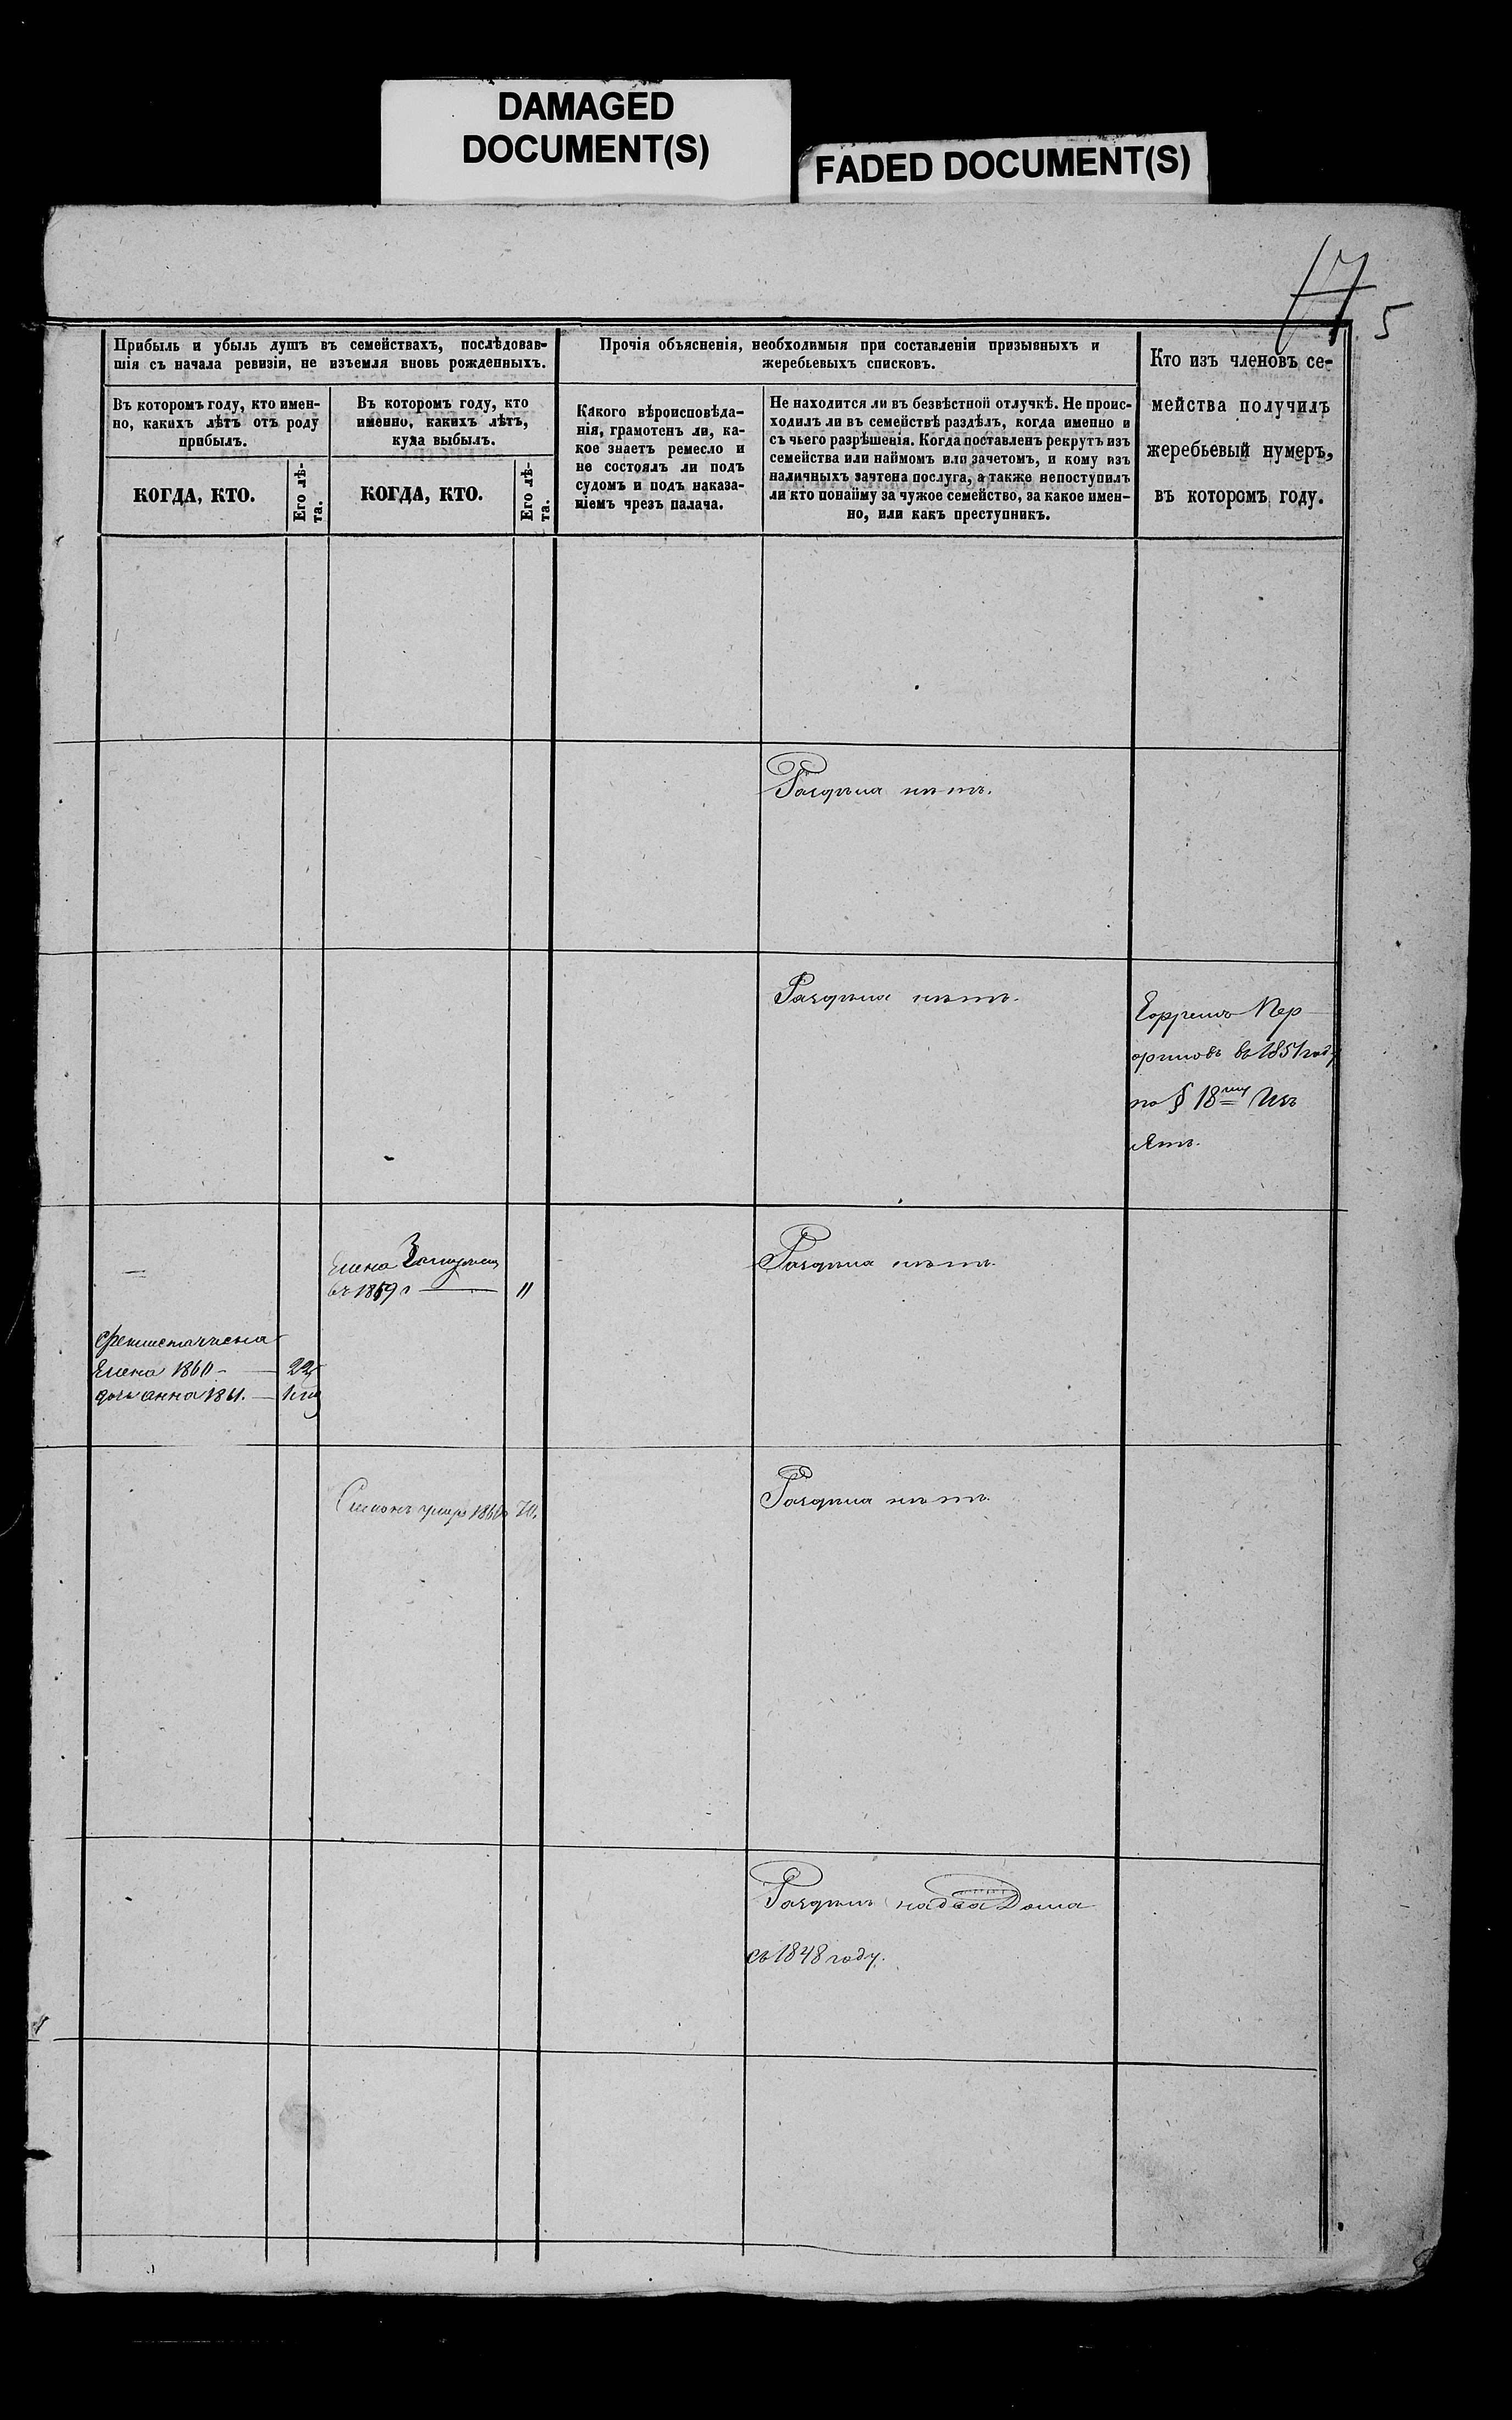 DAMAGED
DOCUMENT(S)
FADED DOCUMENT(S)
17
5
Прибыль и убыль душъ въ семействахъ, послѣдовав-
шія съ начала ревизіи, не изъемля вновь рожденныхъ.
Въ которомъ году, кто имен-
но, какихъ лѣтъ отъ роду
прибылъ.
КОГДА, КТО.
Его лѣ-
та.
Въ которомъ году, кто
именно, какихъ лѣтъ,
куда выбылъ.
КОГДА, КТО.
Его лѣ-
та.
Прочія объясненія, необходимыя при составленіи призывныхъ и
жеребьевыхъ списковъ.
Какого вѣроисповѣда-
нія, грамотенъ ли, ка-
кое знаетъ ремесло и
не состоялъ ли подъ
судомъ и подъ наказа-
ніемъ чрезъ палача.
Не находится ли въ безвѣстной отлучкѣ. Не проис-
ходилъ ли въ семействѣ раздѣлъ, когда именно и
съ чьего разрѣшенія. Когда поставленъ рекрутъ изъ
семейства или наймомъ или зачетомъ, и кому изъ
наличныхъ зачтена послуга, а также непоступилъ
ли кто понайму за чужое семейство, за какое имен-
но, или какъ преступникъ.
Кто изъ членовъ се-
мейства получилъ
жеребьевый нумеръ,
въ которомъ году.
Раздѣла нѣтъ.
Раздѣла нѣтъ.
Ефремъ Пер
въ 1851 году
по § 18му Изъ
ятъ.
Елена Замужемъ
въ 1859 г "
Раздѣла нѣтъ.
Елена 1860 - 22
дочь анна 1861.
Симонъ умеръ 1860 70.
Раздѣла нѣтъ.
Раздѣлъ на два Дома
съ 1848 году.